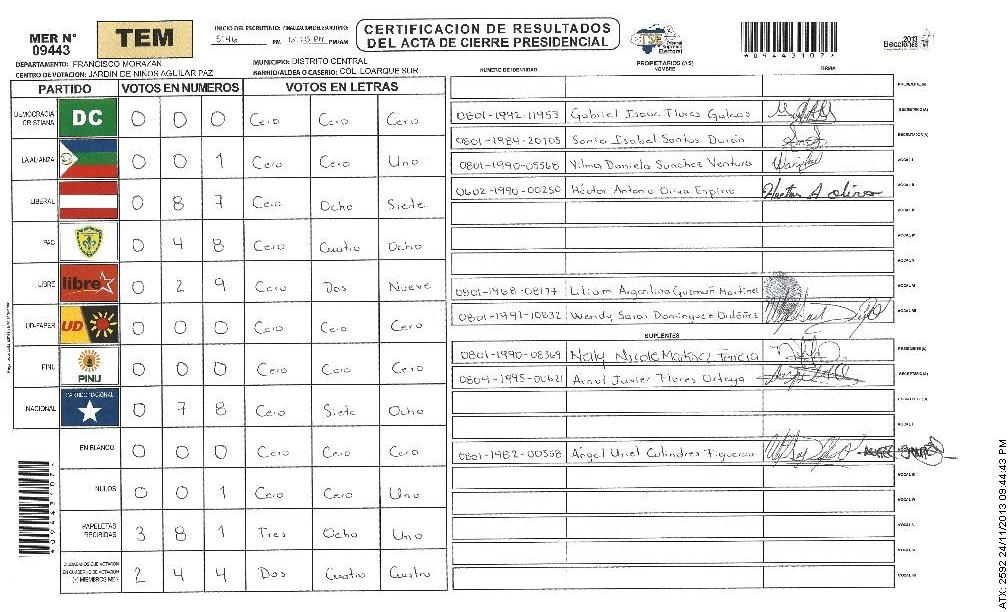 MER N° 09443
TEM
INICIO DEL ESCRUTINIO: FINALIZACION DEL ESCRUTINIO:
5:46 PM PM/AM
CERTIFICACION DE RESULTADOS
DEL ACTA DE CIERRE PRESIDENCIAL
TSE Tribunal Supremo Electoral
*09443107*
2013
Elecciones
DEPARTAMENTO: FRANCISCO MORAZAN
MUNICIPIO: DISTRITO CENTRAL
CENTRO DE VOTACION: JARDIN DE NIÑOS AGUILAR PAZ
BARRIO/ALDEA O CASERIO: COL LOARQUE SUR
PARTIDO VOTOS EN NUMEROS VOTOS EN LETRAS
DEMOCRACIA CRISTIANA DC 0 0 0 Cero Cero Cero
LA ALIANZA 0 0 1 Cero Cero Uno
LIBERAL 0 8 7 Cero Ocho Siete
PAC 0 4 8 Cero Cuatro Ocho
LIBRE libre 0 2 9 Cero Dos Nueve
UD-FAPER UD 0 0 0 Cero Cero Cero
PINU PINU 0 0 0 Cero Cero Cero
NACIONAL PARTIDO NACIONAL 0 7 8 Cero Siete Ocho
EN BLANCO 0 0 0 Cero Cero Cero
NULOS 0 0 1 Cero Cero Uno
PAPELETAS RECIBIDAS 3 8 1 Tres Ocho Uno
CIUDADANOS QUE VOTARON EN CUADERNO DE VOTACION (+) MIEMBROS MER 2 4 4 Dos Cuatro Cuatro
*09443107*
PROPIETARIOS (AS)
NUMERO DE IDENTIDAD NOMBRE FIRMA
PRESIDENTE(A)
0801-1992-11953 Gabriel Isaac Flores Galeas SECRETARIO(A)
0801-1984-20105 Sonia Isabel Santos Durán ESCRUTADOR(A)
0801-1990-05568 Vilma Daniela Sanchez Ventura VOCAL I
0602-1990-00250 Héctor Antonio Oliva Espino VOCAL II
VOCAL III
VOCAL IV
VOCAL V
0801-1968-08177 Lilium Argentina Guzmán Martinez VOCAL VI
0801-1991-10832 Wendy Sarai Dominguez Ordóñez VOCAL VII
SUPLENTES
0801-1990-08369 Nelly Nicole PRESIDENTE(A)
0804-1995-00621 Javier Flores Ortega SECRETARIO(A)
ESCRUTADOR(A)
VOCAL I
0801-1982-00568 Angel Uriel Colindres Figueroa VOCAL II
VOCAL III
VOCAL IV
VOCAL V
VOCAL VI
VOCAL VII
ATX: 2592 24/11/2013 09:44:43 PM